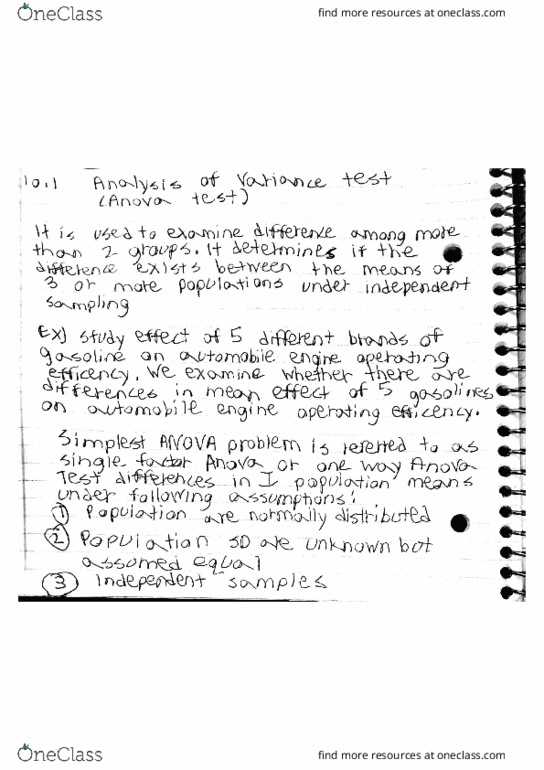 OneClass
find more resources at oneclass.com
10.1 Analysis of Variance test
(Anova test)
It is used to examine difference among more
than 2 groups. It determines if the
difference exists between the means of
3 or more populations under independent
sampling
EX) Study effect of 5 different brands of
gasoline on automobile engine operating
efficency. We examine whether there are
differences in mean effect of 5 gasolines
on automobile engine operating efficency.
Simplest ANOVA problem is referred to as
single factor Anova or one way Anova
Test differences in I population means
under following assumptions:
① Population are normally distributed
② Population SD are unknown but
assumed equal
③ Independent samples
OneClass
find more resources at oneclass.com